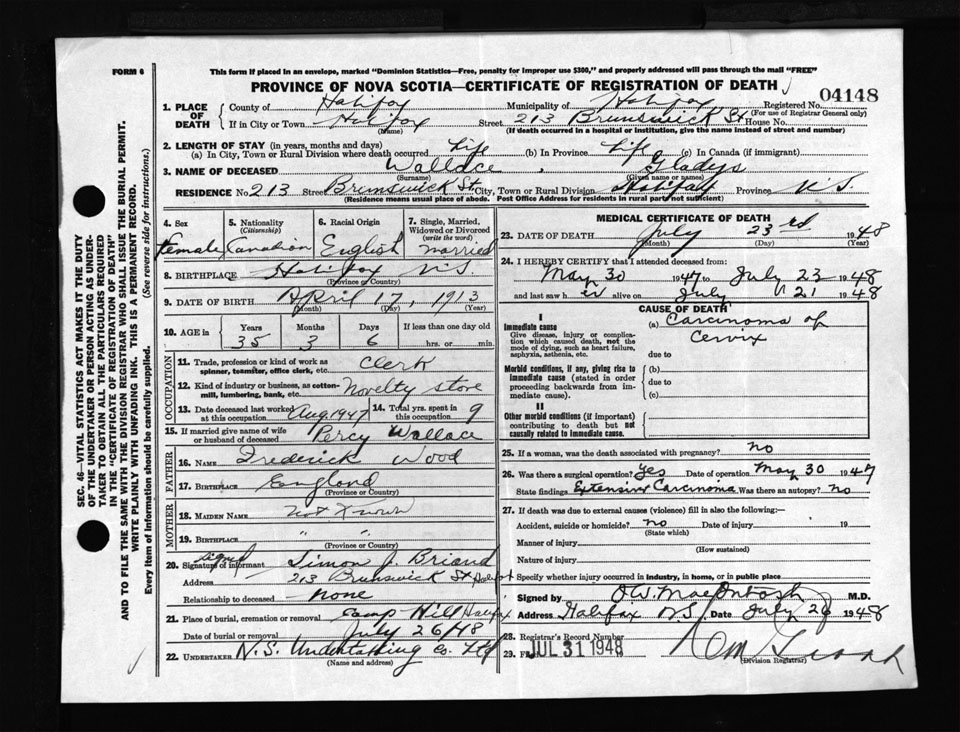 FORM 6
This form if placed in an envelope, marked "Dominion Statistics—Free, penalty for improper use $300," and properly addressed will pass through the mail "FREE"
PROVINCE OF NOVA SCOTIA—CERTIFICATE OF REGISTRATION OF DEATH
1. PLACE OF DEATH County of Halifax Municipality of Halifax Registered No. 04148
(For use of Registrar General only)
If in City or Town Halifax Street 213 Brunswick St House No.
(Name) (If death occurred in a hospital or institution, give the name instead of street and number)
2. LENGTH OF STAY (in years, months and days)
(a) In City, Town or Rural Division where death occurred Life (b) In Province Life (c) In Canada (if immigrant)
3. NAME OF DECEASED Wallace, Gladys
(Surname) (Given name or names)
RESIDENCE No. 213 Street Brunswick St. City, Town or Rural Division Halifax Province N.S.
(Residence means usual place of abode. Post Office Address for residents in rural part not sufficient)
4. Sex
Female
5. Nationality
(Citizenship)
Canadian
6. Racial Origin
English
7. Single, Married, Widowed or Divorced
(write the word)
married
8. BIRTHPLACE Halifax N.S.
(Province or Country)
9. DATE OF BIRTH April 17, 1913
(Month) (Day) (Year)
10. AGE in Years Months Days If less than one day old
35 3 6 hrs. or min.
OCCUPATION
11. Trade, profession or kind of work as spinner, teamster, office clerk, etc. Clerk
12. Kind of industry or business, as cotton-mill, lumbering, bank, etc. Novelty store
13. Date deceased last worked at this occupation Aug. 1947 14. Total yrs. spent in this occupation 9
15. If married give name of wife or husband of deceased Percy Wallace
FATHER
16. NAME Frederick Wood
17. BIRTHPLACE England
(Province or Country)
MOTHER
18. MAIDEN NAME Not Known
19. BIRTHPLACE " "
(Province or Country)
20. signed
Signature of informant Simon J. Briand
Address 213 Brunswick St Halifax
Relationship to deceased none
21. Place of burial, cremation or removal Camp Hill Halifax
Date of burial or removal July 26/48
22. UNDERTAKER N.S. Undertaking Co. Ltd
(Name and address)
MEDICAL CERTIFICATE OF DEATH
23. DATE OF DEATH July 23rd 1948
(Month) (Day) (Year)
24. I HEREBY CERTIFY that I attended deceased from:
May 30 1947 to July 23 1948
and last saw her alive on July 21 1948
CAUSE OF DEATH
I
Immediate cause
Give disease, injury or complication which caused death, not the mode of dying, such as heart failure, asphyxia, asthenia, etc.
(a) Carcinoma of Cervix
due to
Morbid conditions, if any, giving rise to immediate cause (stated in order proceeding backwards from immediate cause).
(b)
due to
(c)
II
Other morbid conditions (if important) contributing to death but not causally related to immediate cause.
25. If a woman, was the death associated with pregnancy? no
26. Was there a surgical operation? yes Date of operation May 30 1947
State findings Extensive Carcinoma Was there an autopsy? no
27. If death was due to external causes (violence) fill in also the following:
Accident, suicide or homicide? no Date of injury 19
(State which)
Manner of injury
(How sustained)
Nature of injury
Specify whether injury occurred in industry, in home, or in public place
Signed by M.D.
Address Halifax N.S. Date July 1948
28. Registrar's Record Number
29. JUL 31 1948
(Division Registrar)
SEC. 46—VITAL STATISTICS ACT MAKES IT THE DUTY
OF THE UNDERTAKER OR PERSON ACTING AS UNDER-
TAKER TO OBTAIN ALL THE PARTICULARS REQUIRED
IN THE "CERTIFICATE OF REGISTRATION OF DEATH"
AND TO FILE THE SAME WITH THE DIVISION REGISTRAR WHO SHALL ISSUE THE BURIAL PERMIT.
WRITE PLAINLY WITH UNFADING INK. THIS IS A PERMANENT RECORD.
Every item of Information should be carefully supplied. (See reverse side for instructions.)